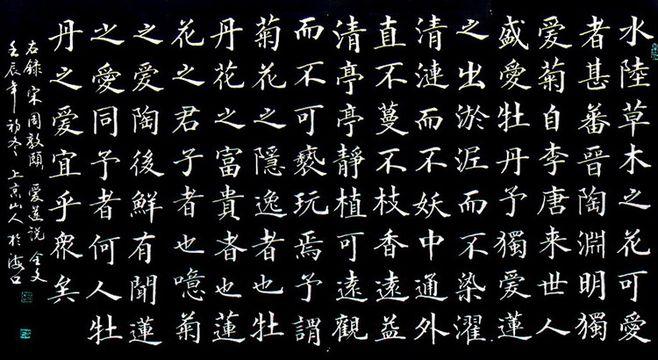 水陸草木之花可愛
者甚蕃晉陶淵明獨
爱菊自李唐来世人
盛愛牡丹予獨爱蓮
之出淤泥而不染濯
清漣而不妖中通外
直不蔓不枝香遠益
清亭亭靜植可遠觀
而不可褻玩焉予謂
菊花之隱逸者也牡
丹花之富貴者也蓮
花之君子者也噫菊
之爱陶後鮮有聞蓮
之愛同予者何人牡
丹之爱宜乎衆矣
右錄宋周敦頤爱蓮說全文
壬辰年初冬上京山人於海口